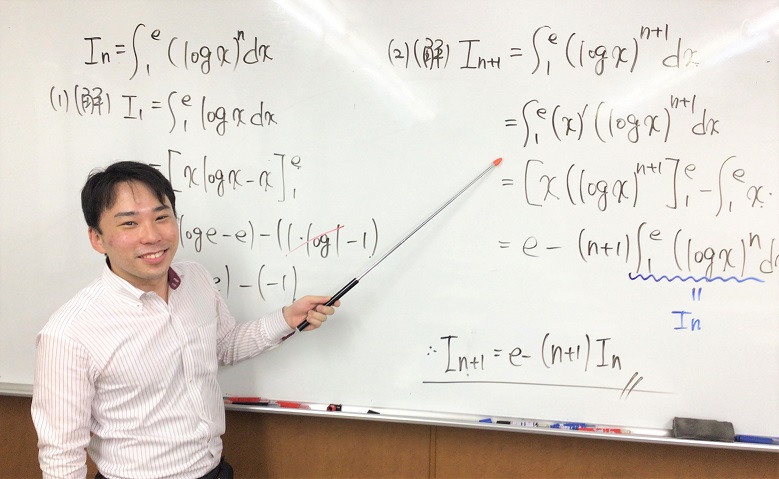 Iₙ = ∫₁ᵉ (log x)ⁿ dx
(1) (解) I₁ = ∫₁ᵉ log x dx
= [x log x − x]₁ᵉ
log e − e) − (1·log 1 − 1)
e) − (−1)
(2) (解) Iₙ₊₁ = ∫₁ᵉ (log x)ⁿ⁺¹ dx
= ∫₁ᵉ (x)′ (log x)ⁿ⁺¹ dx
= [x ((log x)ⁿ⁺¹]₁ᵉ − ∫₁ᵉ x.
= e − (n+1) ∫₁ᵉ (log x)ⁿ dx
||
Iₙ
∴ Iₙ₊₁ = e − (n+1) Iₙ //